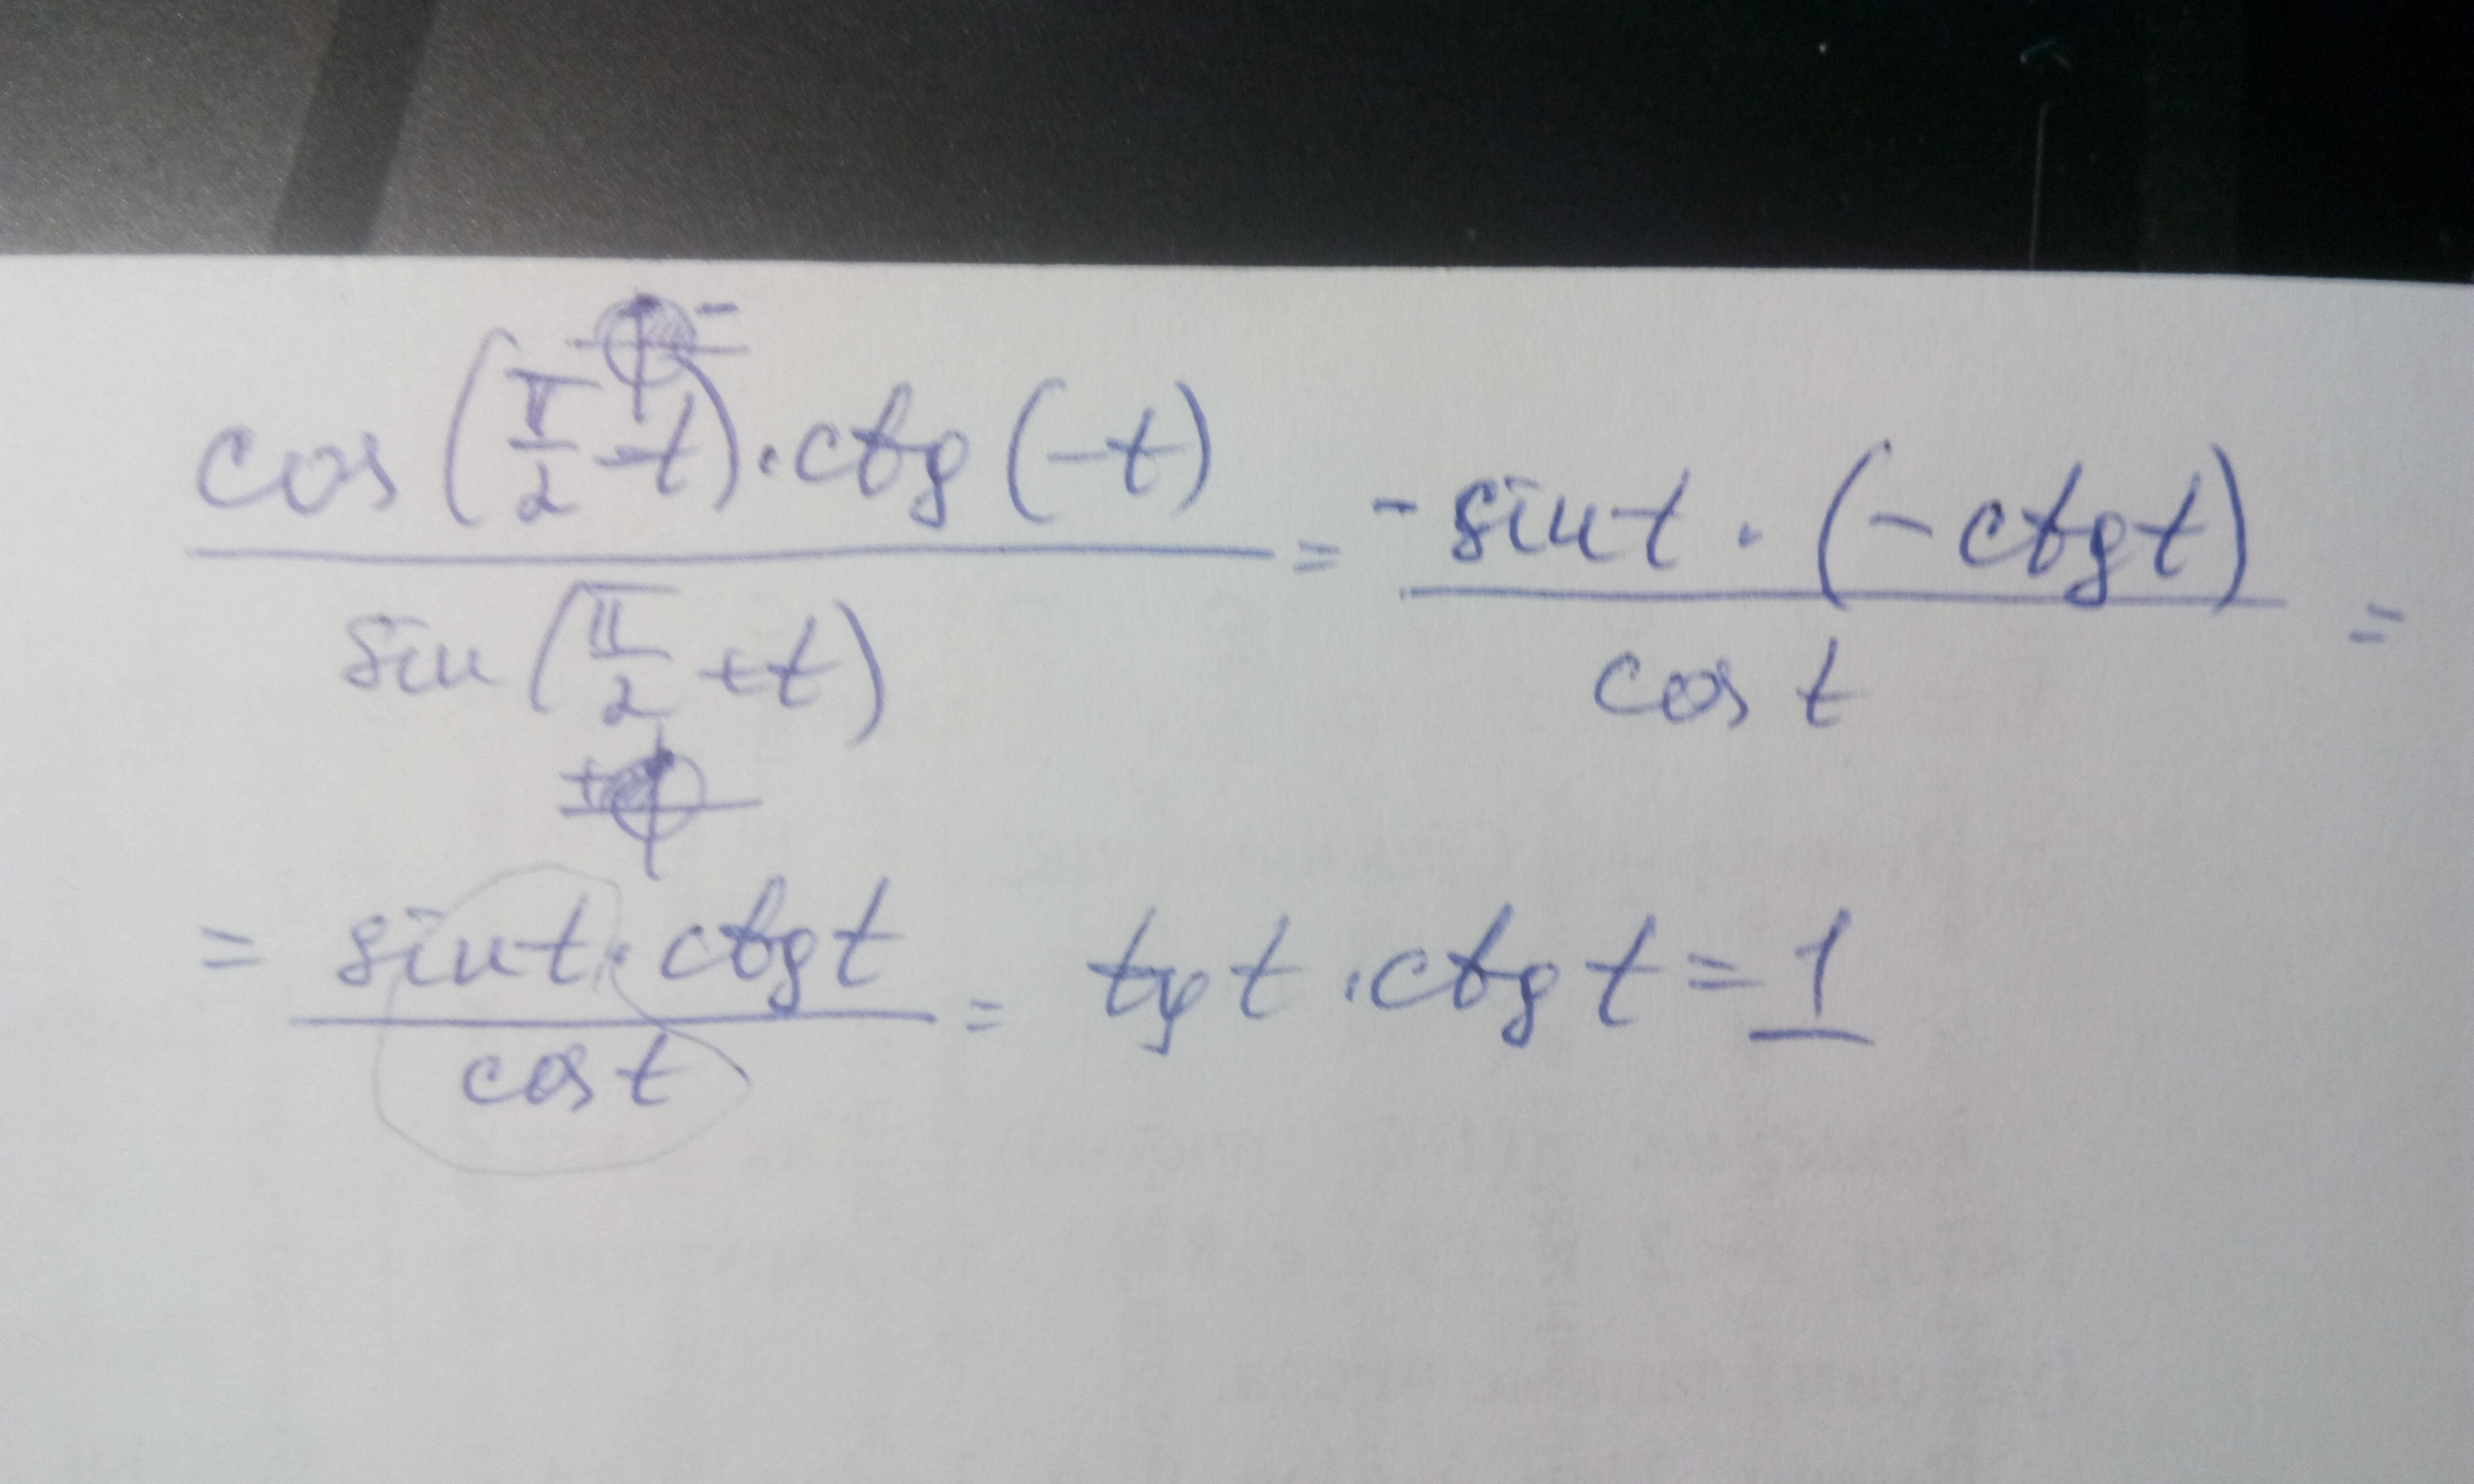 cos(π/2 - t) · ctg(-t) / sin(π/2 + t) = -sin t · (-ctg t) / cos t =
= sin t · ctg t / cos t = tg t · ctg t = 1